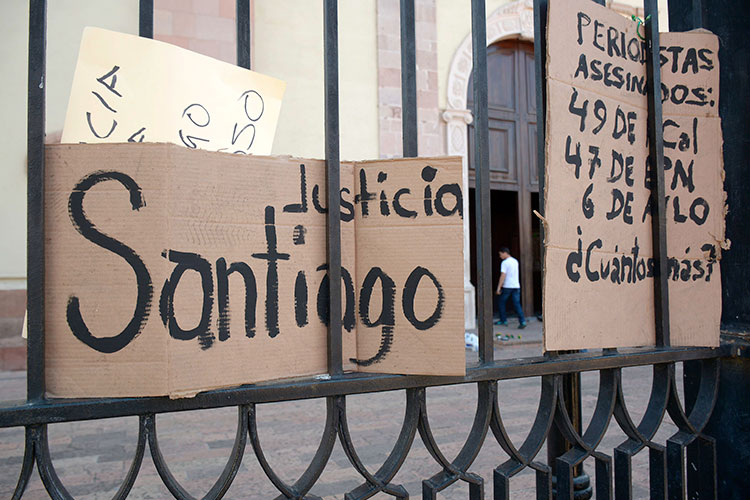 Justicia
Santiago
PERIODISTAS
ASESINADOS:
49 DE Cal
47 DE EPN
6 DE AMLO
¿Cuántos más?